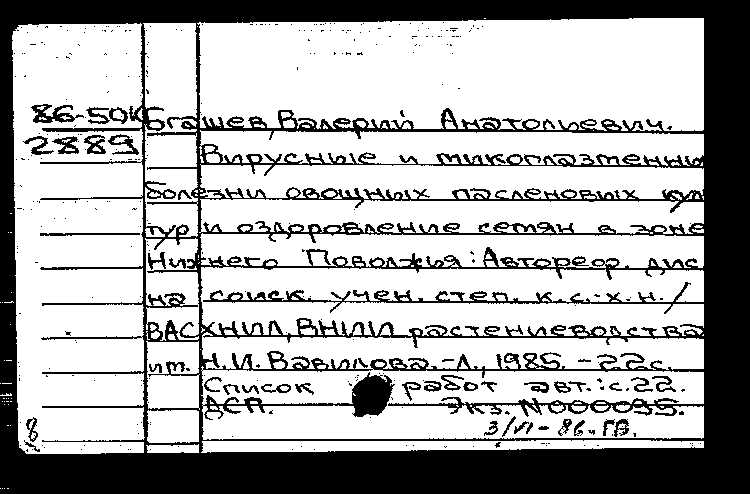 86-50К Бгашев, Валерий Анатольевич.
2889 Вирусные и микоплазменны
болезни овощных пасленовых кул
тур и оздоровление семян в зоне
Нижнего Поволжья: Автореф. дис
на соиск. учен. степ. к.с.-х.н./
ВАСХНИЛ, ВНИИ растениеводства
им. Н.И. Вавилова.-Л., 1985. - 22с.
Список работ авт.: с.22.
ДСП. Экз. N000095.
8 3/VI - 86. ГВ.